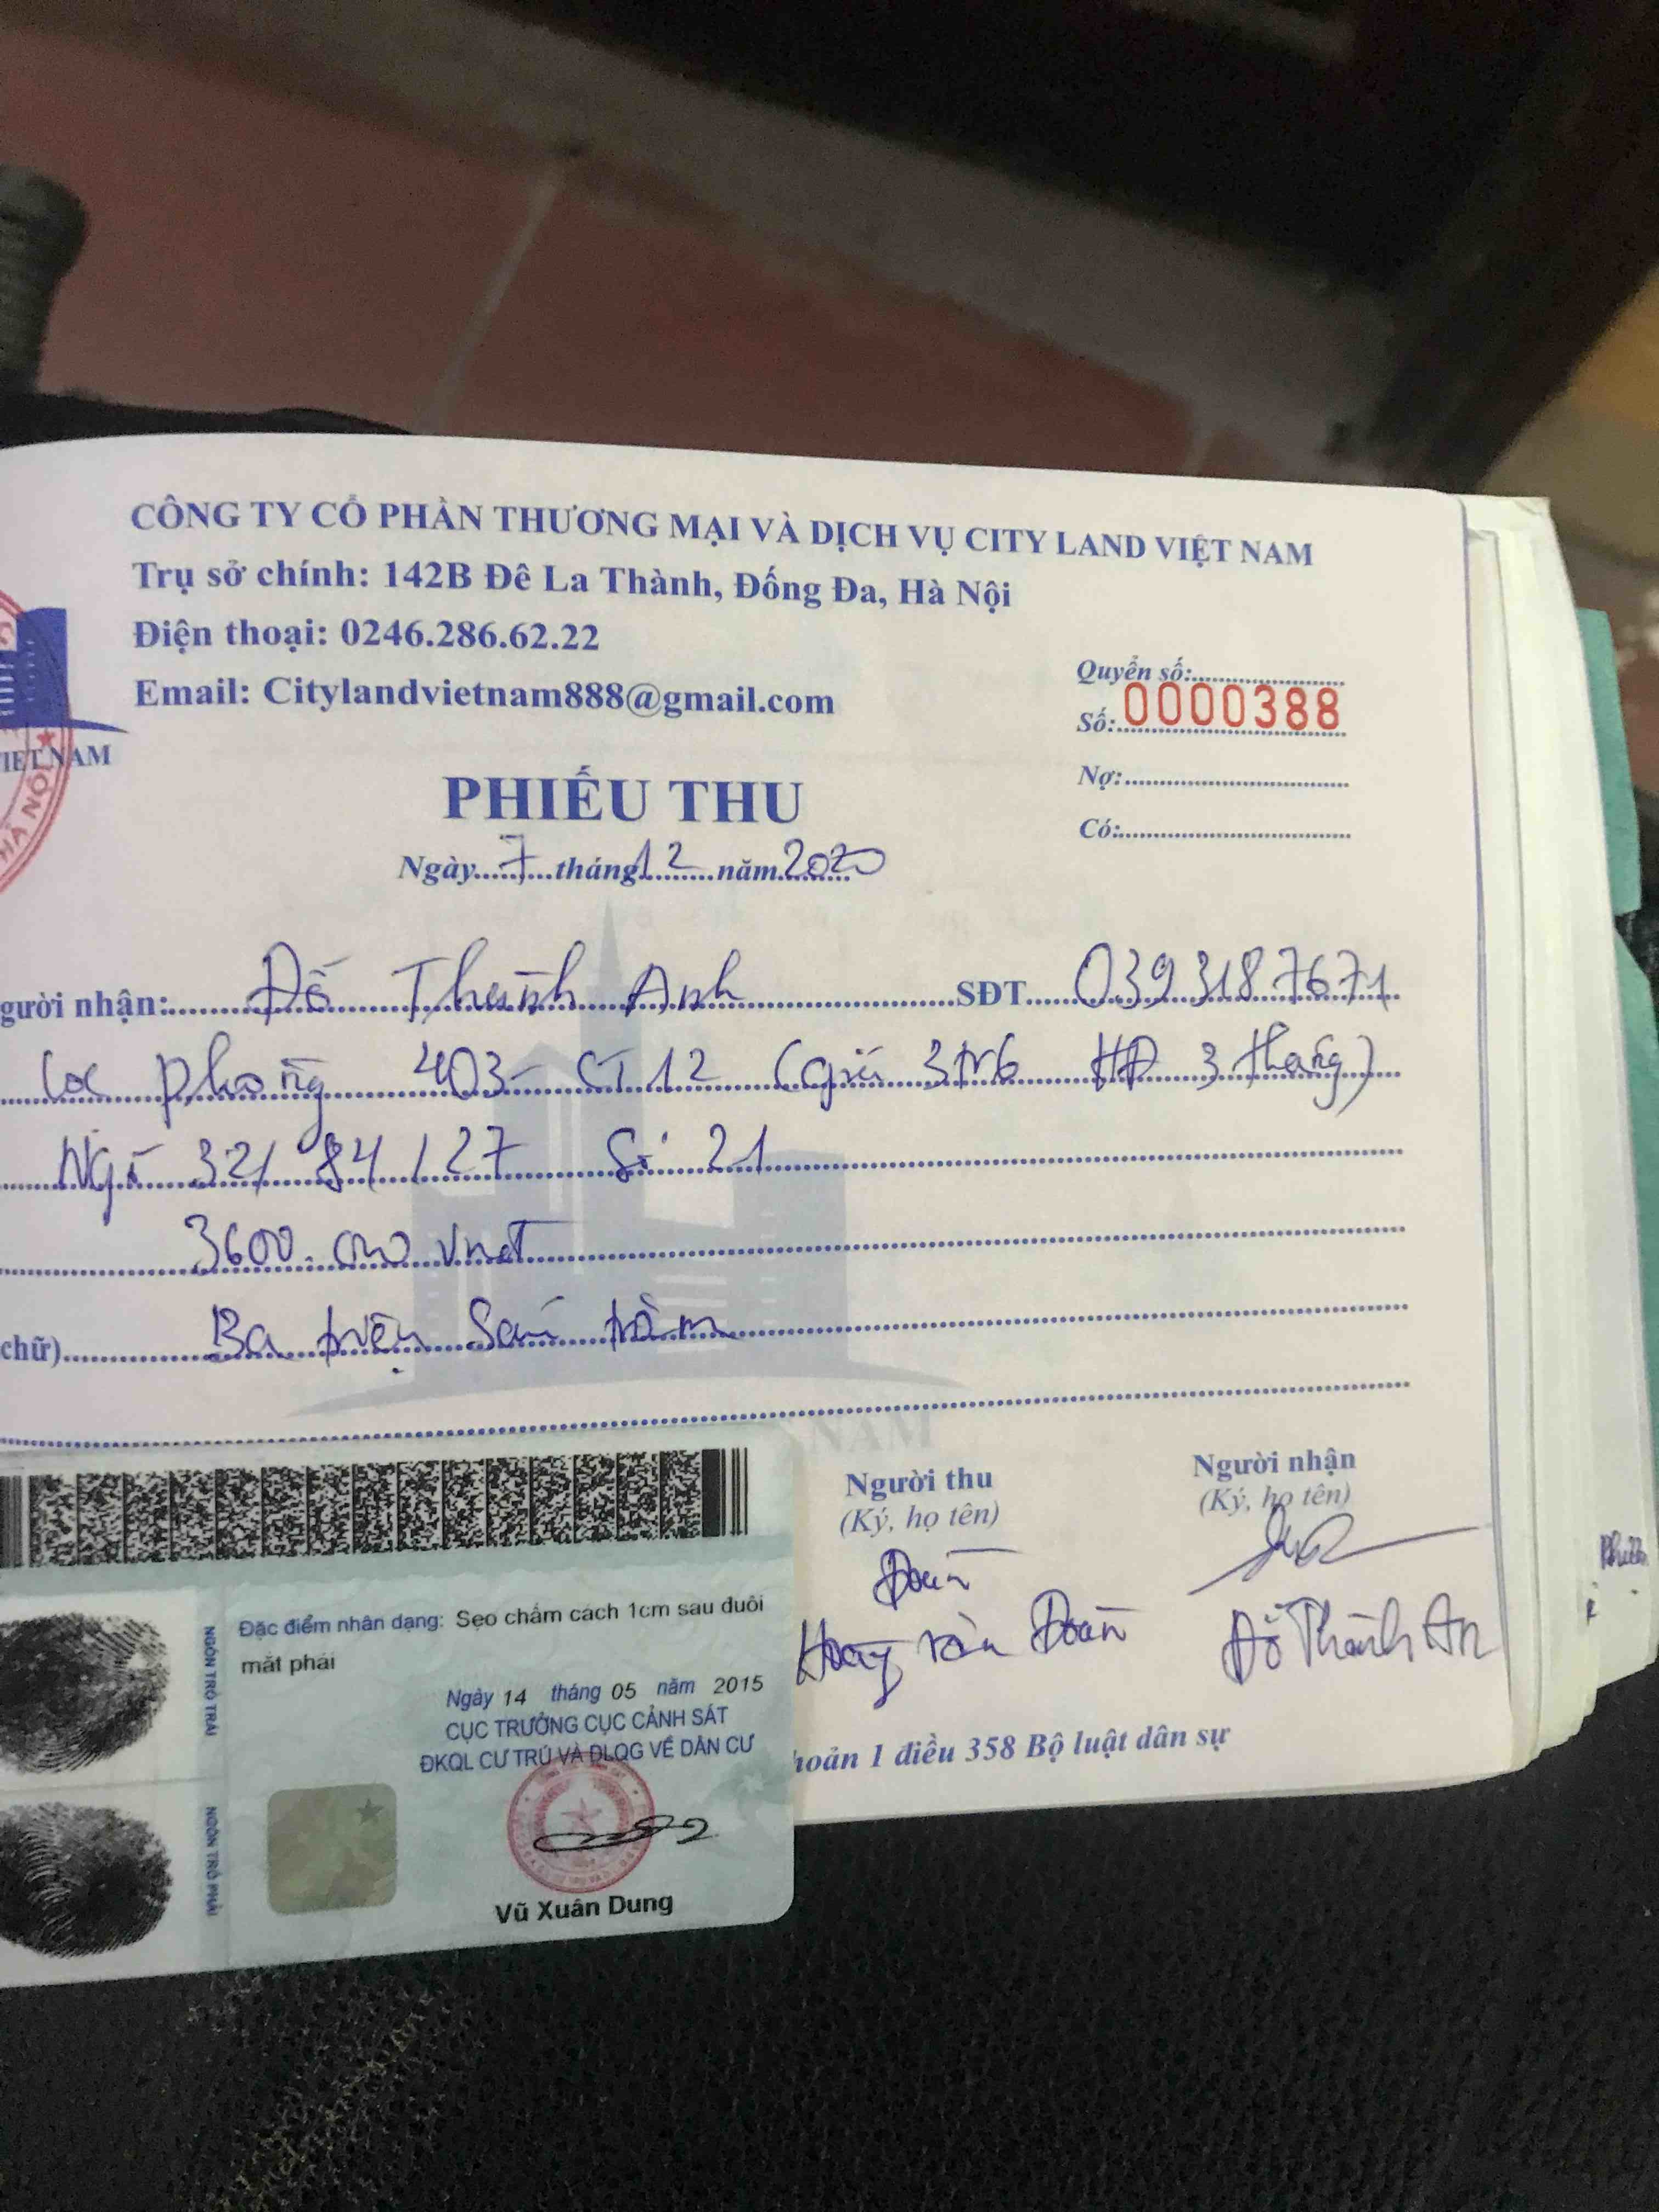 CÔNG TY CỔ PHẦN THƯƠNG MẠI VÀ DỊCH VỤ CITY LAND VIỆT NAM
Trụ sở chính: 142B Đê La Thành, Đống Đa, Hà Nội
Điện thoại: 0246.286.62.22
Email: Citylandvietnam888@gmail.com
Quyển số:
Số: 0000388
Nợ:
Có:
VIET NAM
HÀ NỘI
PHIẾU THU
Ngày 7 tháng 12 năm 2020
gười nhận: Đỗ Thành Anh SĐT 0393187671
cọc phòng 403 - CT12 (giá 3tr6 HĐ 3 tháng)
Ngõ 321/84/27 Số 21
3600.000 vnđ
chữ) Ba triệu Sáu trăm
NAM
Người thu
(Ký, họ tên)
Đoàn
Hoàng văn Đoàn
Người nhận
(Ký, họ tên)
Đỗ Thành An
hoản 1 điều 358 Bộ luật dân sự
NGÓN TRỎ TRÁI
NGÓN TRỎ PHẢI
Đặc điểm nhân dạng: Sẹo chấm cách 1cm sau đuôi
mắt phải
Ngày 14 tháng 05 năm 2015
CỤC TRƯỞNG CỤC CẢNH SÁT
ĐKQL CƯ TRÚ VÀ DLQG VỀ DÂN CƯ
Vũ Xuân Dung